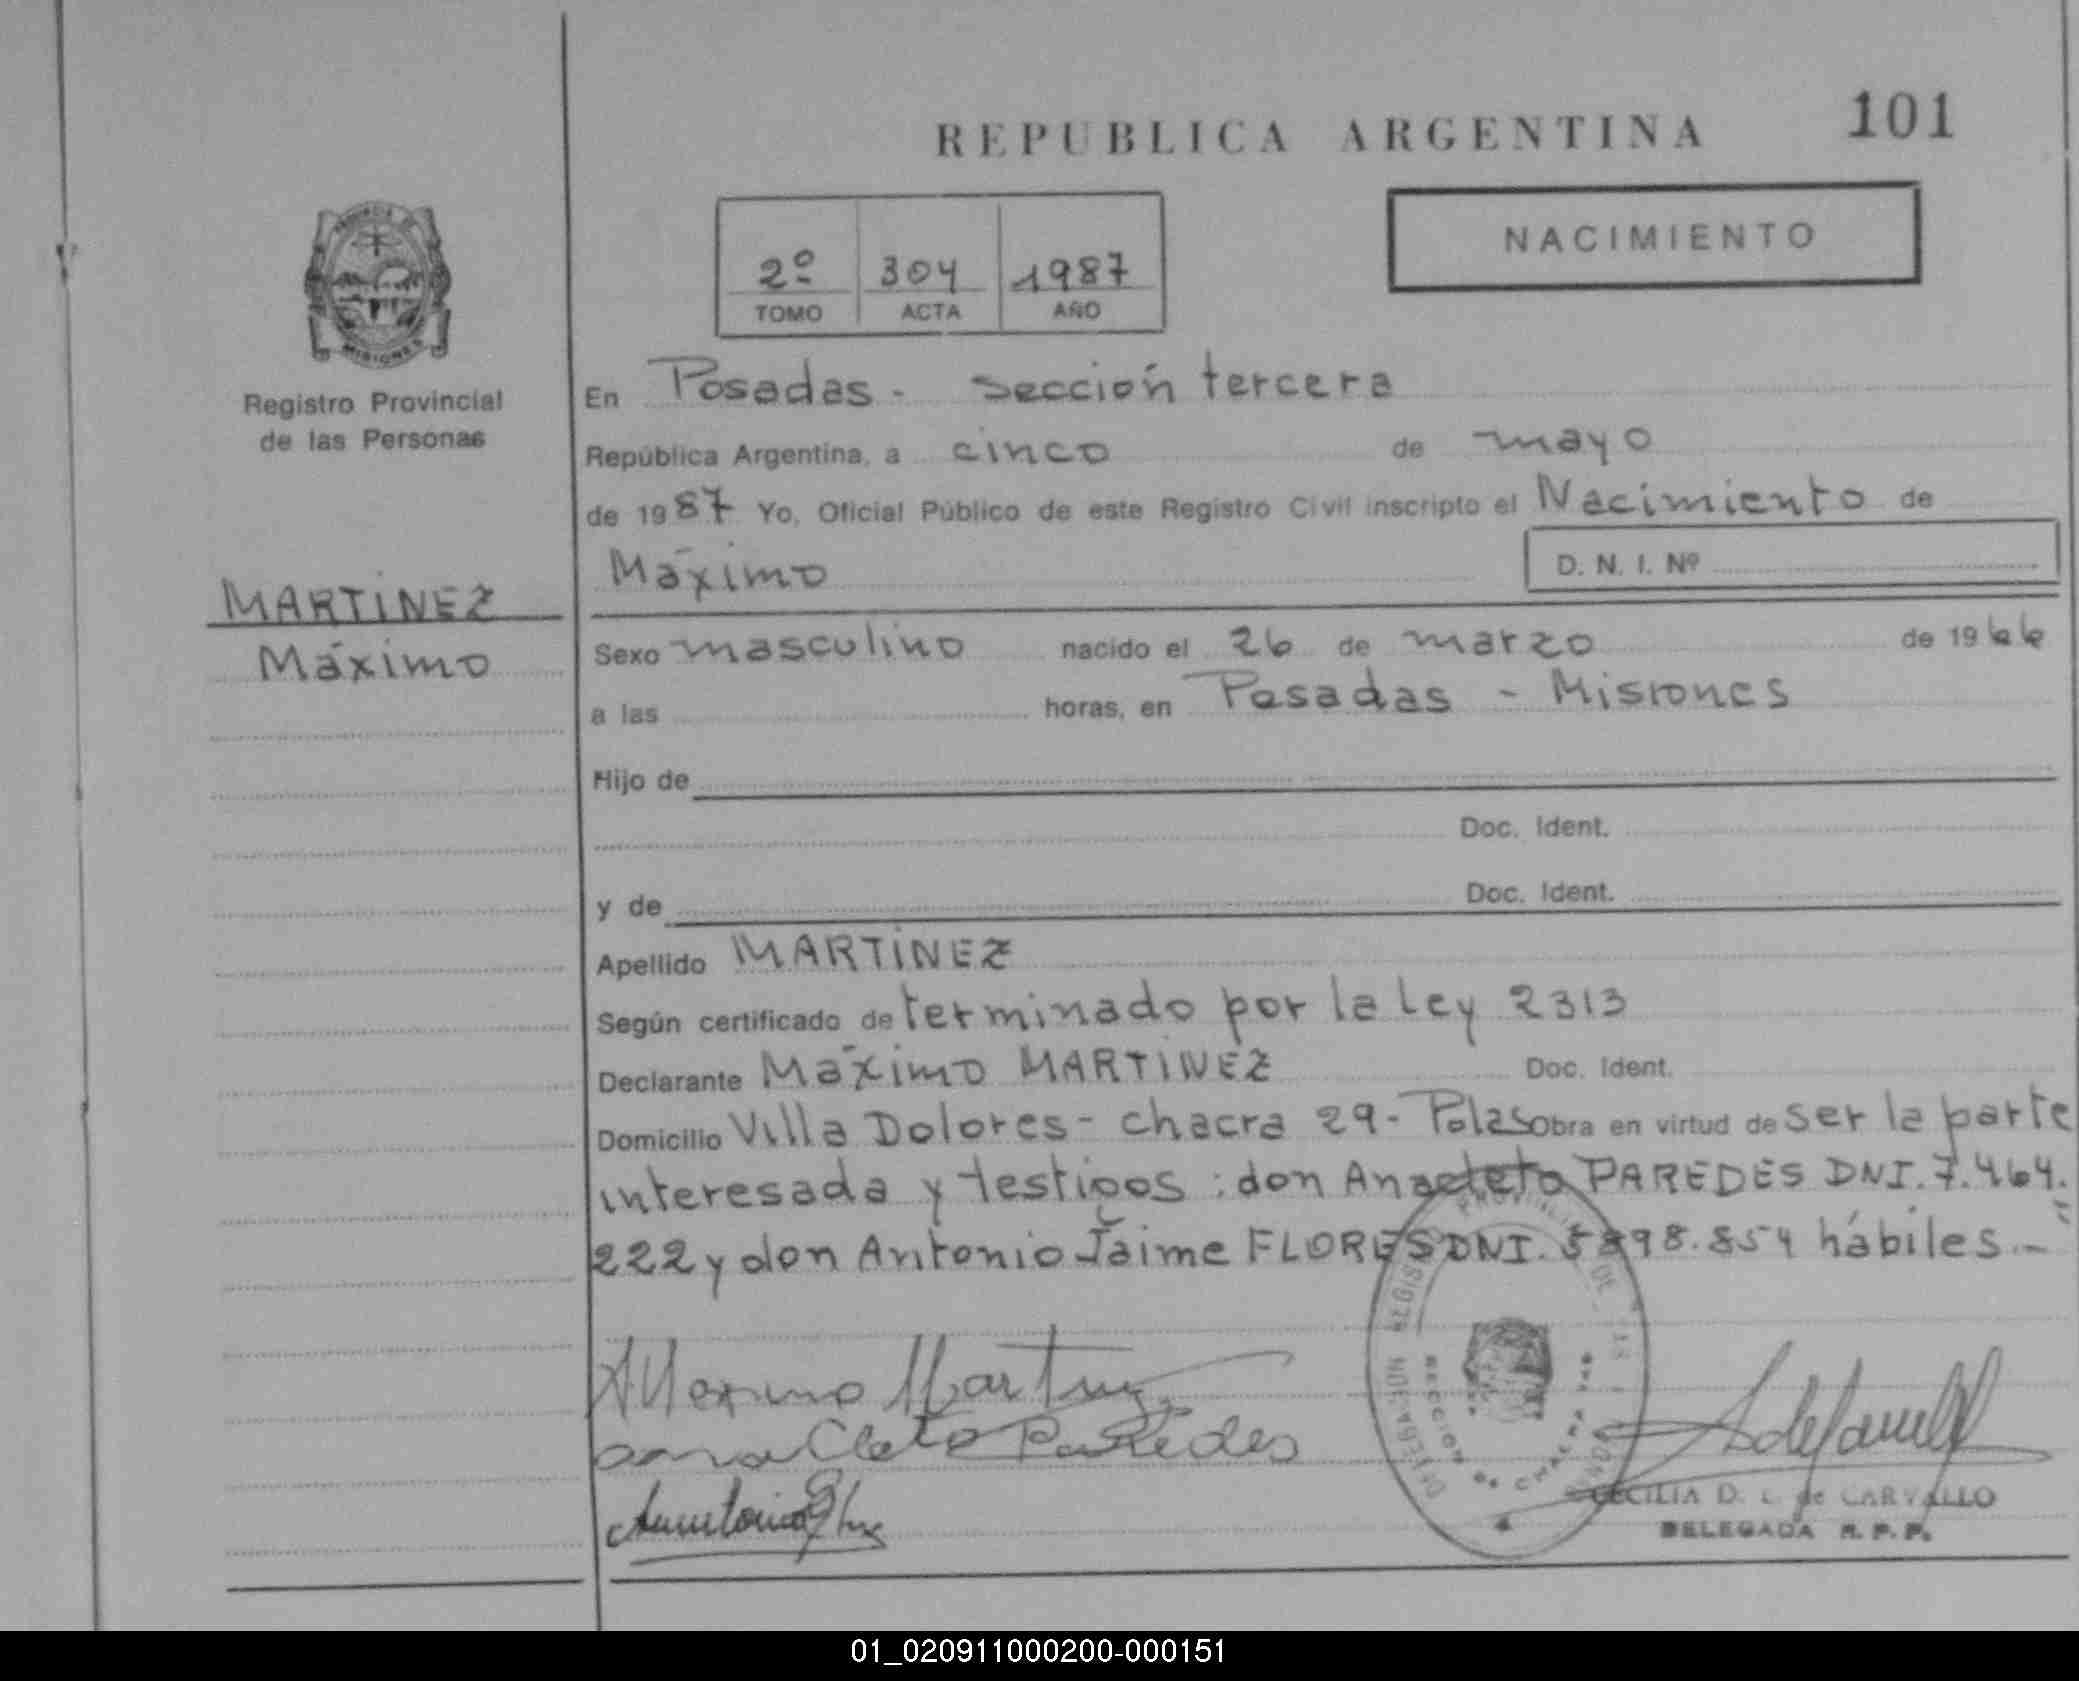 REPUBLICA ARGENTINA
101
NACIMIENTO
2º 304 1987
TOMO ACTA AÑO
MISIONES
Registro Provincial
de las Personas
En Posadas - Sección tercera
República Argentina, a cinco de mayo
de 1987 Yo, Oficial Público de este Registro Civil inscripto el Nacimiento de
Máximo
D. N. I. Nº
MARTINEZ
Máximo
Sexo masculino nacido el 26 de marzo de 1966
a las horas, en Posadas - Misiones
Hijo de
Doc. Ident.
y de Doc. Ident.
Apellido MARTINEZ
Según certificado de terminado por la Ley 2313
Declarante Máximo MARTINEZ Doc. Ident.
Domicilio Villa Dolores - chacra 29 - Pdas Obra en virtud de ser la parte
interesada y testigos : don Anacleto PAREDES DNI. 7.464.
222 y don Antonio Jaime FLORES DNI. hábiles.-
Maximo Martinez
ana Cleto Paredes
CECILIA D. L. de CARVALLO
DELEGADA R. P. P.
01_020911000200-000151